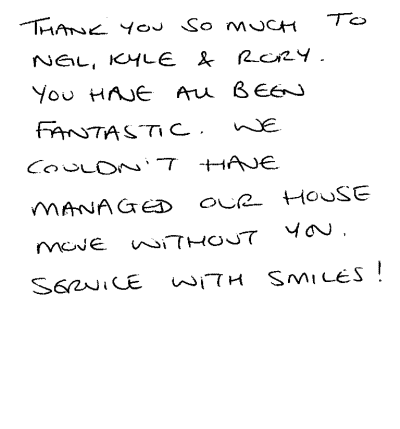 THANK YOU SO MUCH TO
NEIL, KYLE & RORY.
YOU HAVE ALL BEEN
FANTASTIC. WE
COULDN'T HAVE
MANAGED OUR HOUSE
MOVE WITHOUT YOU.
SERVICE WITH SMILES!